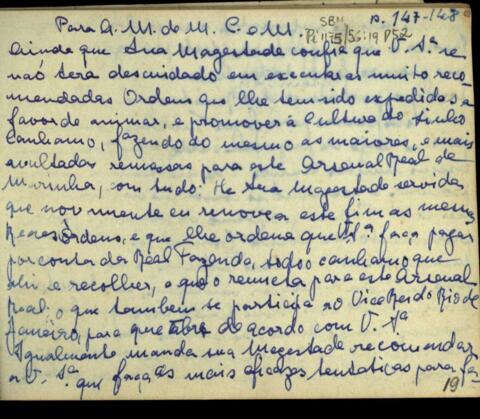 p. 147-148
SB"
Para A. M. de M. C. e M.
Pi 1175/56:19 P52
Ainda que Sua Magestade confie que V. Sª. se
não terá descuidado em executar as muito reco-
mendadas Ordens que lhe tem sido expedidas a
favor de animar, e promover a Cultura do Linho
Canhamo, fazendo do mesmo as maiores, e mais
avultadas remessas para este Arsenal Real de
Marinha, com tudo: He Sua Magestade servida
que novamente eu renove a este fim as mesmas
Reaes Ordens, e que lhe ordene que V. Sª. faça pagar
por conta da Real Fazenda, todo o canhamo que
ahi se recolher, e que o remeta para este Arsenal
Real: o que tambem se participa ao Vice Rei do Rio de
Janeiro, para que obre de acordo com V. Sª
Igualmente manda sua Magestade recomendar
a V. Sª. que faça as mais eficazes tentativas para fa-
19